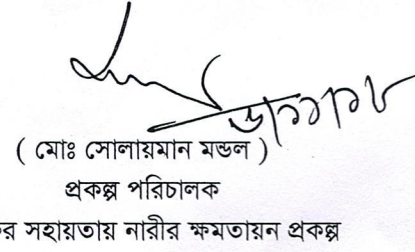 ( মোঃ সোলায়মান মন্ডল )
প্রকল্প পরিচালক
সহায়তায় নারীর ক্ষমতায়ন প্রকল্প